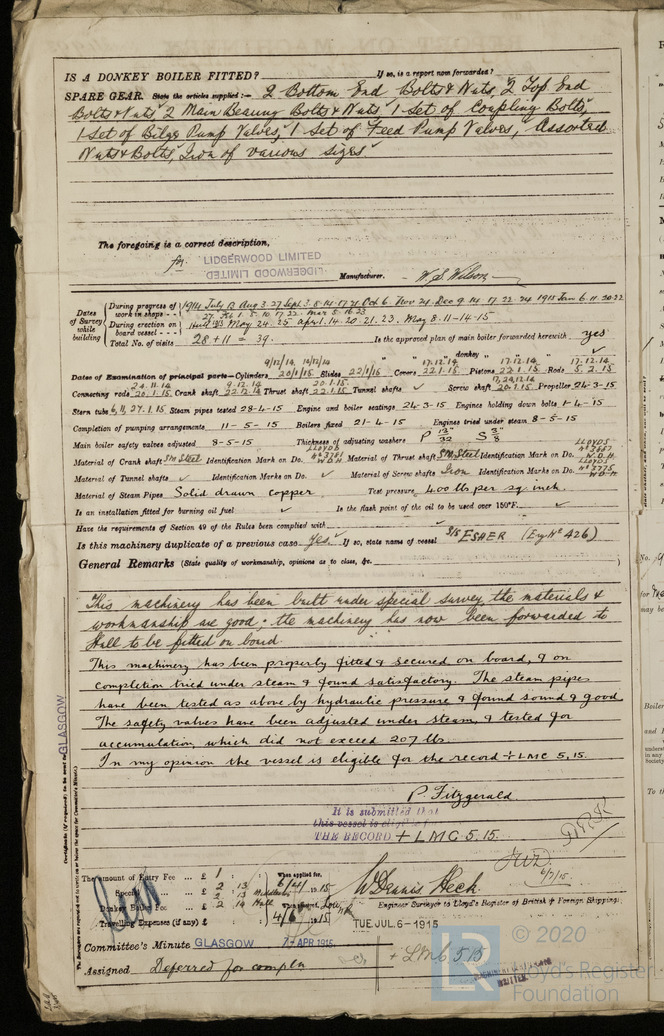 IS A DONKEY BOILER FITTED? If so, is a report now forwarded?
SPARE GEAR. State the articles supplied:— 2 Bottom End Bolts & Nuts, 2 Top End
Bolts & Nuts, 2 Main Bearing Bolts & Nuts, 1 Set of Coupling Bolts,
1 Set of Bilge Pump Valves, 1 Set of Feed Pump Valves, Assorted
Nuts & Bolts, Iron of various sizes
The foregoing is a correct description,
for LIDGERWOOD LIMITED
LIDGERWOOD LIMITED
Manufacturer. W. S. Wilson
Dates of Survey while building
During progress of work in shops - - 1914 July 13 Aug 3. 27 Sept 3. 8. 14. 17. 21 Oct 6. Nov 24. Dec 9. 14. 17. 22. 24 1915 Jan 6. 11. 20. 22.
During erection on board vessel - - - May 24. 25 April. 14. 20. 21. 23. May 8-11-14-15
Total No. of visits 28 + 11 = 39. Is the approved plan of main boiler forwarded herewith yes
" " " donkey " " "
9/12/14, 14/12/14 17.12.14 17.12.14 17.12.14
Dates of Examination of principal parts—Cylinders 20/1/15 Slides 22/1/15 Covers 22.1.15 Pistons 22.1.15 Rods 5.2.15
24.11.14 9.12.14 20.1.15 17,24,12.14
Connecting rods 20.1.15 Crank shaft 22.12.14 Thrust shaft 22.1.15 Tunnel shafts Screw shaft 20.1.15 Propeller 24-3-15
Stern tube 6, 11, 27.1.15 Steam pipes tested 28-4-15 Engine and boiler seatings 24-3-15 Engines holding down bolts 1-4-15
Completion of pumping arrangements 11-5-15 Boilers fixed 21-4-15 Engines tried under steam 8-5-15
Main boiler safety valves adjusted 8-5-15 Thickness of adjusting washers P 13/32 S 3/8
Material of Crank shaft Steel Identification Mark on Do. LLOYDS W.D.H Material of Thrust shaft Steel Identification Mark on Do. LLOYDS W.D.H
Material of Tunnel shafts Identification Marks on Do. Material of Screw shafts Iron Identification Marks on Do. LLOYDS W.D.H
Material of Steam Pipes Solid drawn copper Test pressure 400 lbs per sq inch.
Is an installation fitted for burning oil fuel Is the flash point of the oil to be used over 150°F.
Have the requirements of Section 49 of the Rules been complied with
Is this machinery duplicate of a previous case Yes. If so, state name of vessel S/S ESHER (Eng No 426)
General Remarks (State quality of workmanship, opinions as to class, &c.
This machinery has been built under special survey, the materials &
workmanship are good. the machinery has now been forwarded to
Hull to be fitted on board.
This machinery has been properly fitted & secured on board, & on
completion tried under steam & found satisfactory. The steam pipes
have been tested as above by hydraulic pressure & found sound & good
The safety valves have been adjusted under steam, & tested for
accumulation which did not exceed 207 lbs.
In my opinion the vessel is eligible for the record + LMC 5,15.
P. Fitzgerald
It is submitted that
this vessel is eligible for
THE RECORD + LMC 5.15.
6/7/15
GLASGOW
The amount of Entry Fee ... £ 1 : : When applied for,
Special ... £ 2 13 6/4/1915
Donkey Boiler Fee ... £ 2 14 Hull
Travelling Expenses (if any) £ 4/6 1915
W Dennis Heck.
Engineer Surveyor to Lloyd's Register of British & Foreign Shipping.
TUE. JUL. 6 - 1915
Committee's Minute GLASGOW 7 - APR. 1915
Assigned Deferred for compln
+ LMC 5,15
WRITTEN
© 2020
LR
Lloyd's Register
Foundation